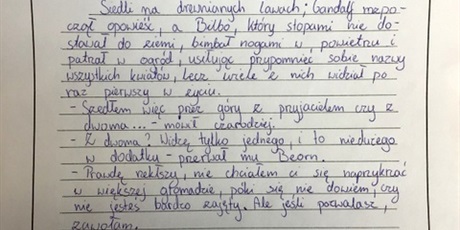 Siedli na drewnianych ławach; Gandalf rozpo-
czął opowieść, a Bilbo, który stopami nie do-
stawał do ziemi, bimbał nogami w powietrzu i
patrzał w ogród, usiłując przypomnieć sobie nazwy
wszystkich kwiatów, lecz wiele z nich widział po
raz pierwszy w życiu.
- Szedłem więc przez góry z przyjacielem czy z
dwoma... - mówił czarodziej.
- Z dwoma? Widzę tylko jednego, i to niedużego
w dodatku - przerwał mu Beorn.
- Prawdę rekłszy, nie chciałem ci się naprzykrzać
w większej gromadzie, póki się nie dowiem, czy
nie jesteś bardzo zajęty. Ale jeśli pozwalasz,
zawołam.